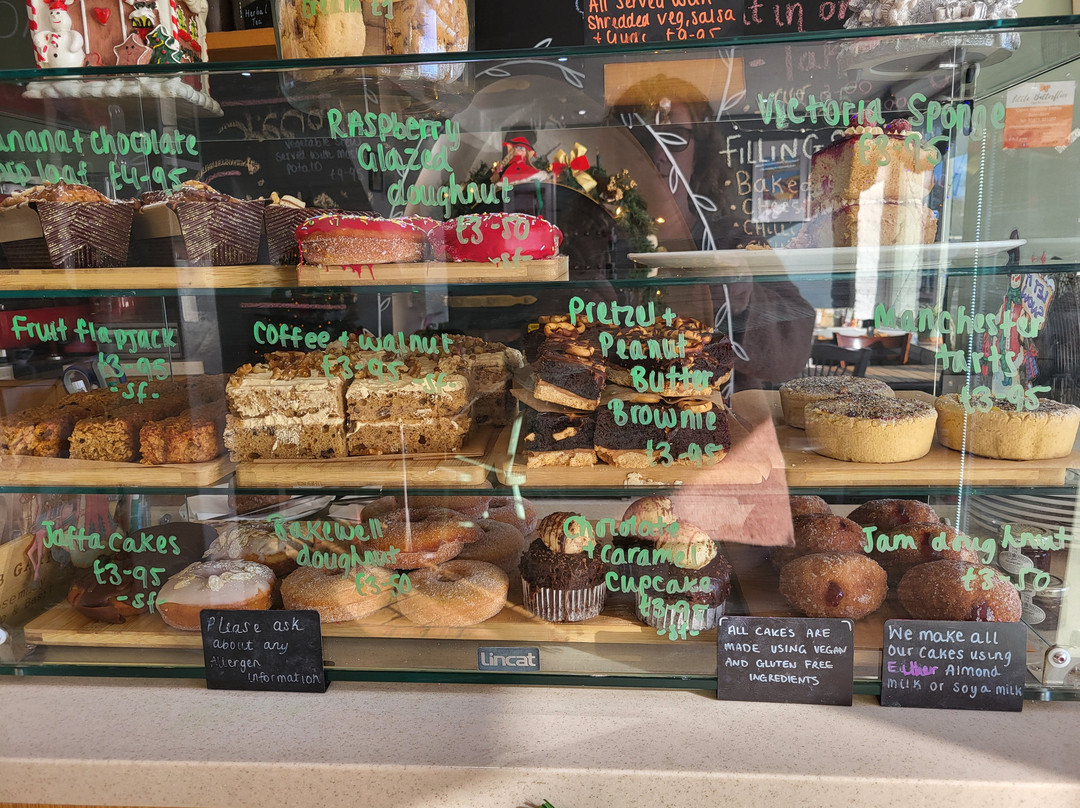 Herbal
Tea
All served with
Shredded veg, salsa
+ Guac £9-95
it in or
anana + chocolate
loaf £4-95
Raspberry
Glazed
doughnut
£3-50
Victoria Sponge
FILLING
- Baked
Fruit flapjack
£3-95
sf-
Coffee + walnut
£3-95 sf-
Pretzel +
Peanut
Butter
Brownie
£3-95
Manchester
tarts
£3-95
Jaffa cakes
£3-95
-sf-
Bakewell
doughnut
£3-50
Chocolate
+ caramel
Cupcake
£3-95
sf-
Jam doughnut
£3-50
Please ask
about any
Allergen
information
Lincat
ALL CAKES ARE
MADE USING VEGAN
AND GLUTEN FREE
INGREDIENTS
We make all
Our cakes using
Either Almond
milk or soya milk